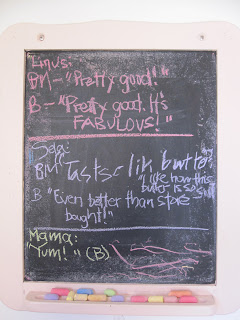 Linus:
BM - "Pretty good!"
B - "Pretty good. It's
FABULOUS!"
Saa:
BM "Tastes lik butter"
"I like how this
butter is so soft"
B "Even better than store
bought!"
Mama:
"Yum!" (B)